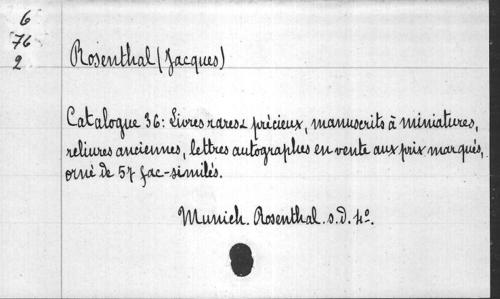 6
76
2
Rosenthal (Jacques)
Catalogue 36: Livres rares & précieux, manuscrits à miniatures,
reliures anciennes, lettres autographes en vente aux prix marqués,
orné de 57 fac-similés.
Munich. Rosenthal. s.d. 4º.